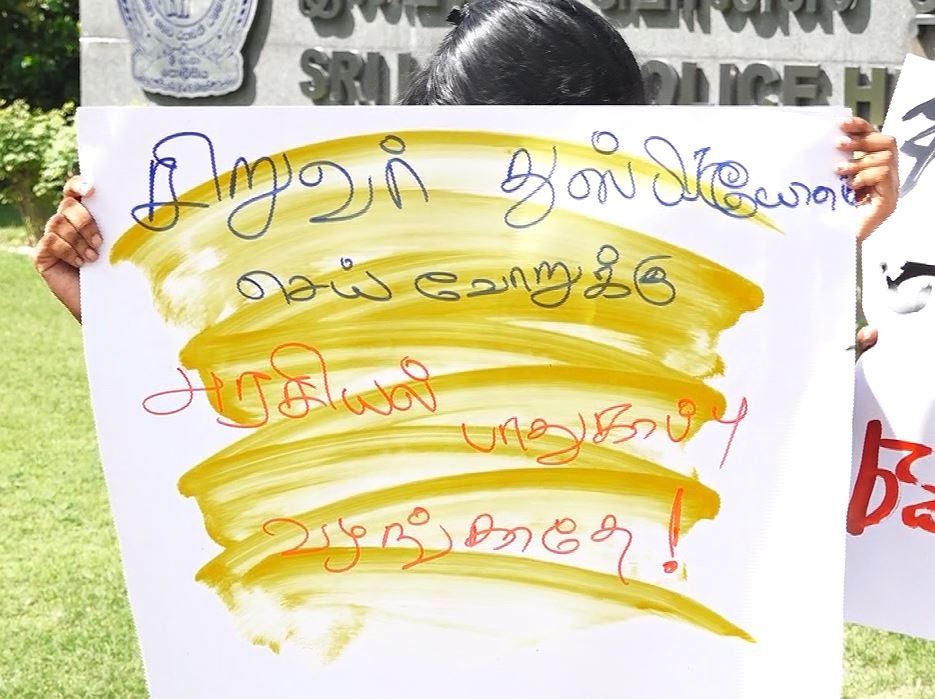 SRI POLICE H
சிறுவர் துஸ்பிரயோகம்
செய் வோறுக்கு
அரசியல்
பாதுகாப்பு
வழங்காதே!